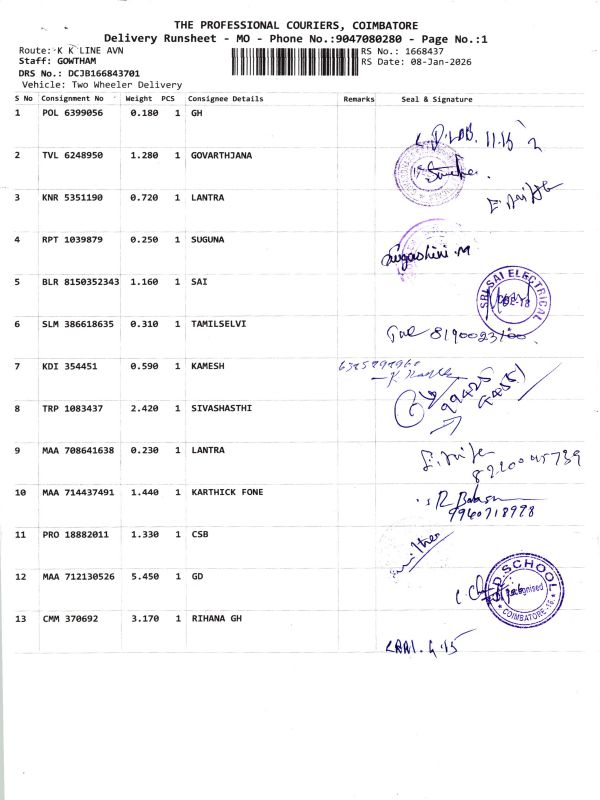 THE PROFESSIONAL COURIERS, COIMBATORE
Delivery Runsheet - MO - Phone No.:9047080280 - Page No.:1
Route: K K LINE AVN RS No.: 1668437
Staff: GOWTHAM RS Date: 08-Jan-2026
DRS No.: DCJB166843701
Vehicle: Two Wheeler Delivery
S No Consignment No Weight PCS Consignee Details Remarks Seal & Signature
1 POL 6399056 0.180 1 GH
11.15
2 TVL 6248950 1.280 1 GOVARTHJANA
3 KNR 5351190 0.720 1 LANTRA
4 RPT 1039879 0.250 1 SUGUNA
Sugashini.M
5 BLR 8150352343 1.160 1 SAI
SRI SAI ELECTRICAL
6 SLM 386618635 0.310 1 TAMILSELVI
7 KDI 354451 0.590 1 KAMESH
8 TRP 1083437 2.420 1 SIVASHASTHI
9 MAA 708641638 0.230 1 LANTRA
10 MAA 714437491 1.440 1 KARTHICK FONE
9960718978
11 PRO 18882011 1.330 1 CSB
12 MAA 712130526 5.450 1 GD
D SCHOOL
Recognised
COIMBATORE-15
13 CMM 370692 3.170 1 RIHANA GH